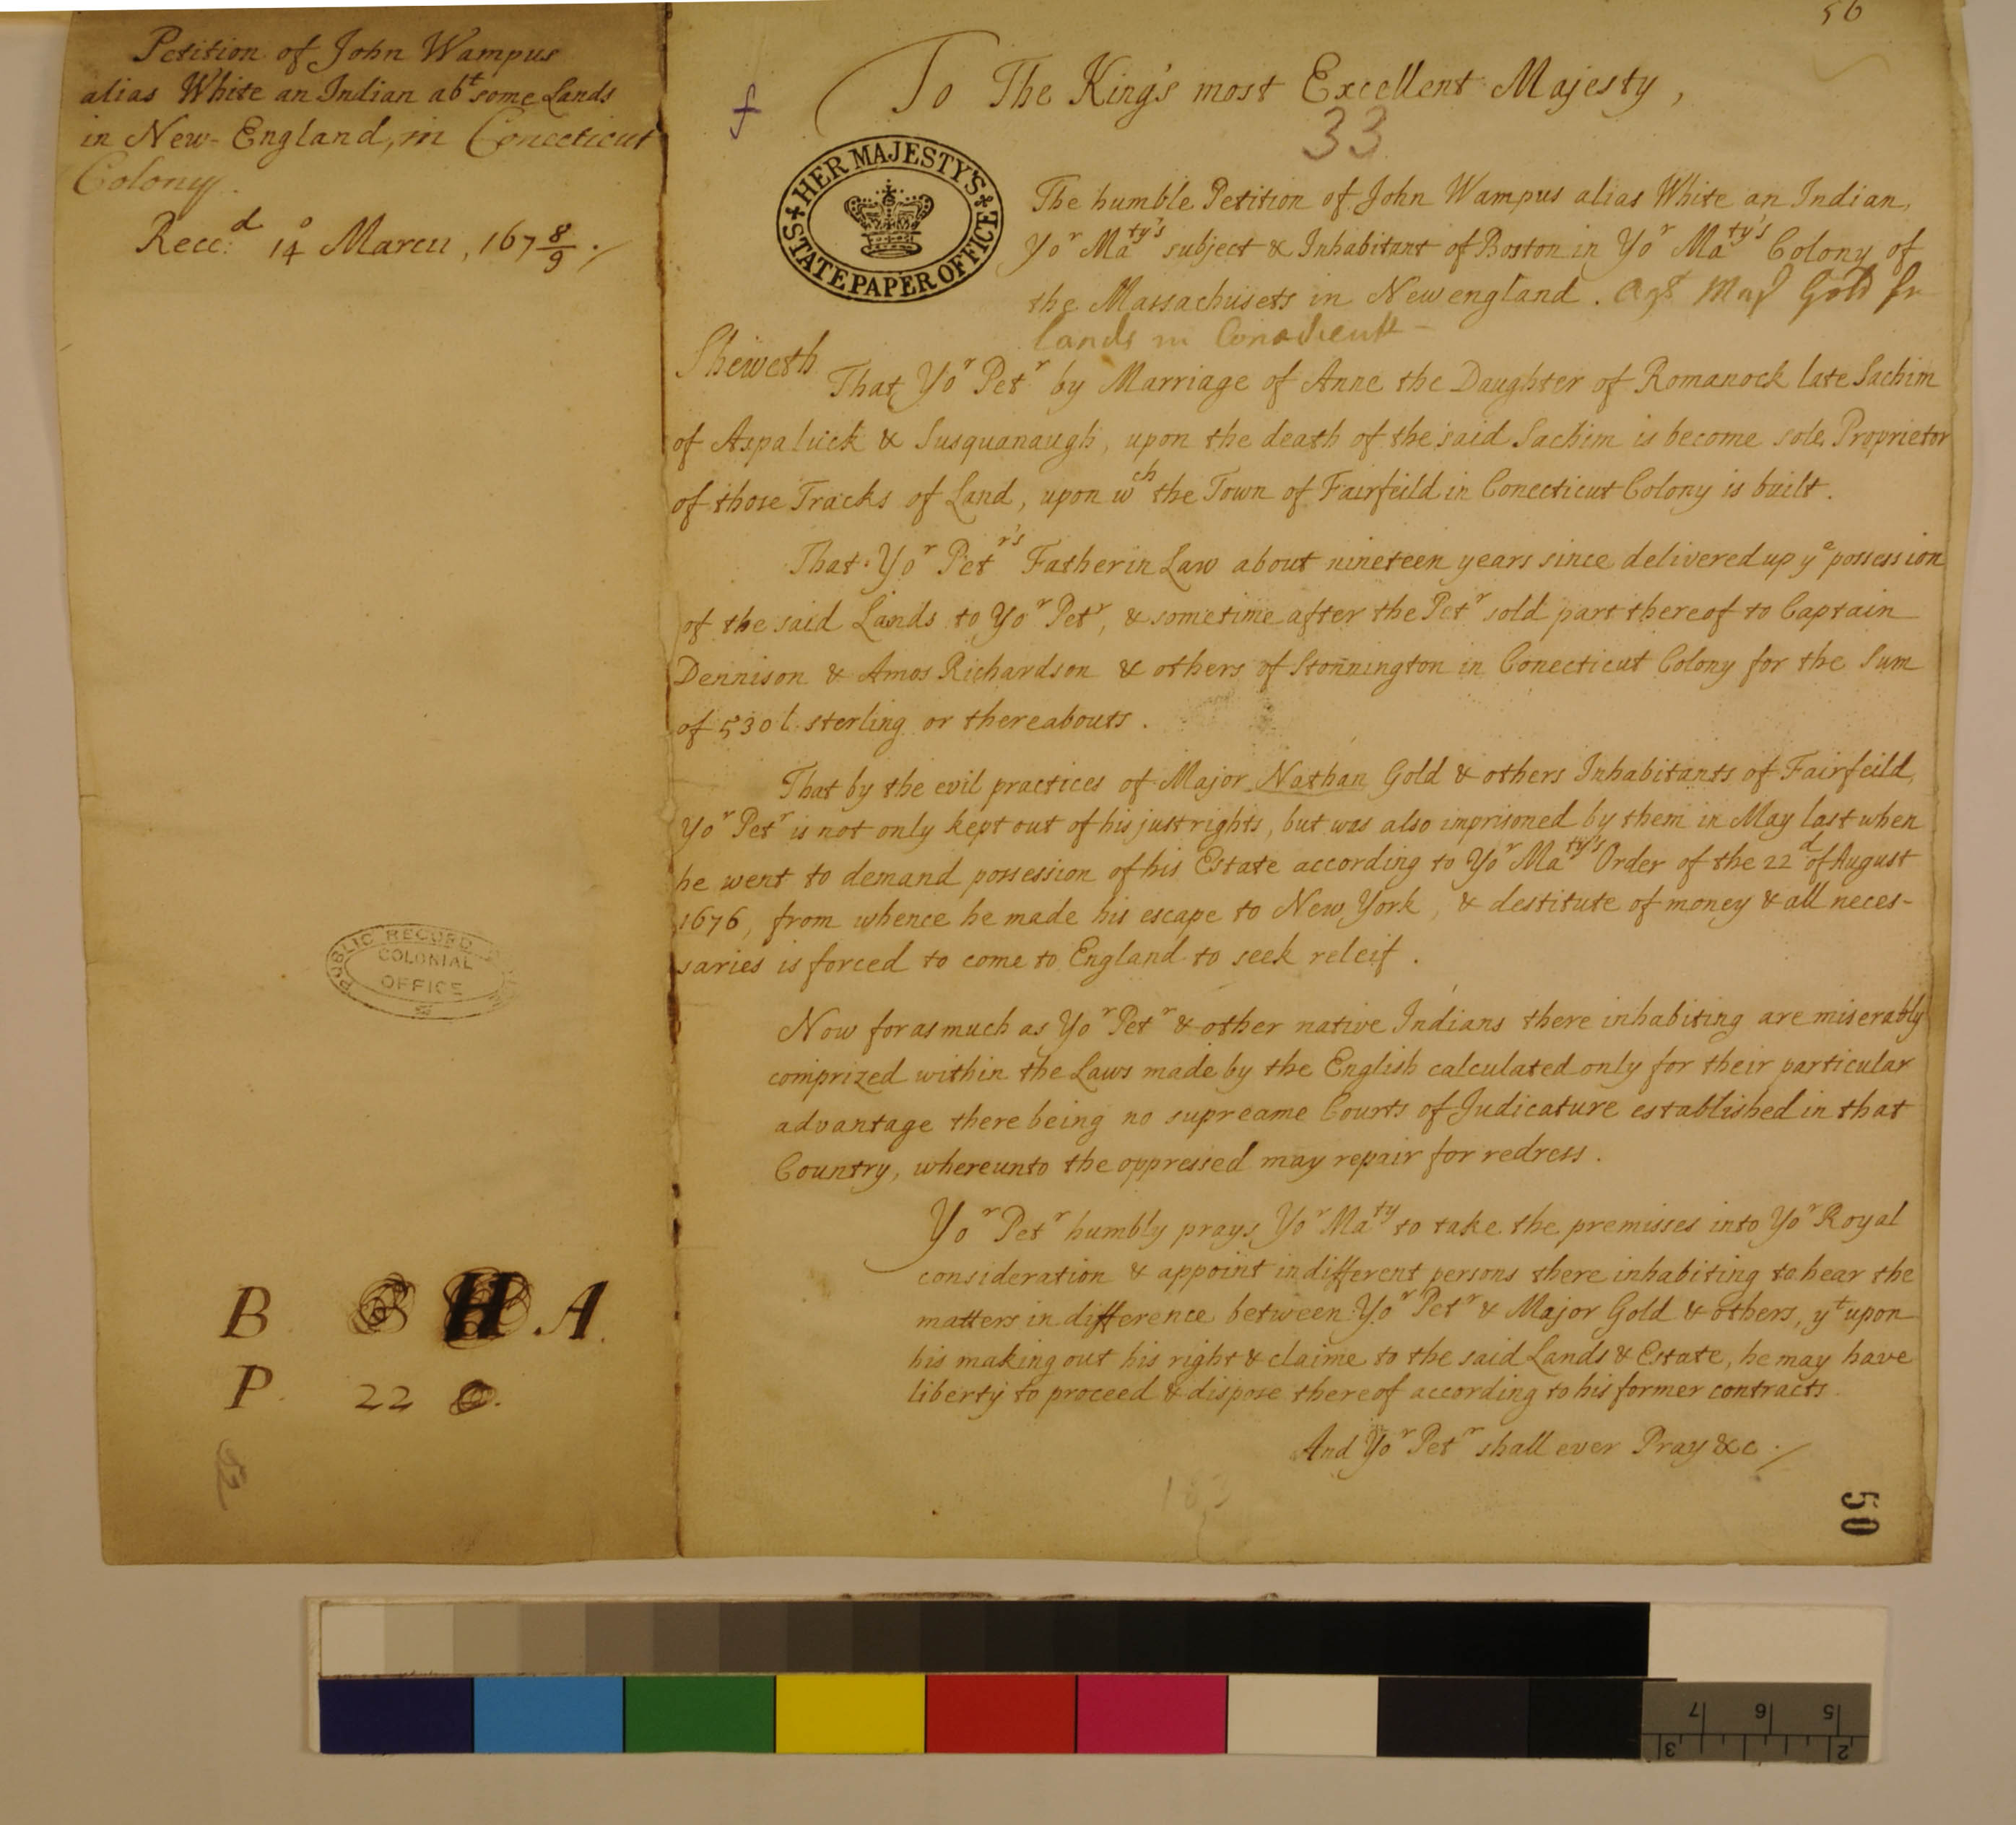 Petition of John Wampus
alias White an Indian abt some Lands
in New-England, in Conecticut
Colony.
Recc:d 14o March, 167 8/9
PUBLIC RECORD
COLONIAL
OFFICE
B B H A.
P. 22
56
To The King's most Excellent Majesty,
33
HER MAJESTY'S STATE PAPER OFFICE
The humble Petition of John Wampus alias White an Indian,
Yor Maty's subject & Inhabitant of Boston in Yor Maty's Colony of
the Massachusets in Newengland. agt Majr Gold fr
lands in Conecticutt
Sheweth
That Yor Petr by Marriage of Anne the Daughter of Romanock late Sachim
of Aspatuck & Susquanaugh, upon the death of the said Sachim is become sole Proprietor
of those Tracks of Land, upon wch the Town of Fairfeild in Conecticut Colony is built.
That Yor Petr's Father in Law about nineteen years since delivered up ye possession
of the said Lands to Yor Petr, & sometime after the Petr sold part thereof to Captain
Dennison & Amos Richardson & others of Stonnington in Conecticut Colony for the Sum
of 530 l. sterling or thereabouts.
That by the evil practices of Major Nathan Gold & others Inhabitants of Fairfeild,
Yor Petr is not only kept out of his just rights, but was also imprisoned by them in May last when
he went to demand possession of his Estate according to Yor Maty's Order of the 22d of August
1676, from whence he made his escape to New York, & destitute of money & all neces-
saries is forced to come to England to seek releif.
Now for as much as Yor Petr & other native Indians there inhabiting are miserably
comprized within the Laws made by the English calculated only for their particular
advantage there being no supreame Courts of Judicature established in that
Country, whereunto the oppressed may repair for redress.
Yor Petr humbly prays Yor Maty to take the premisses into Yor Royal
consideration & appoint indifferent persons there inhabiting to hear the
matters in difference between Yor Petr & Major Gold & others, yt upon
his making out his right & claime to the said Lands & Estate, he may have
liberty to proceed & dispose thereof according to his former contracts.
And Yor Petr shall ever Pray &c.
50
7 6 5
3 2